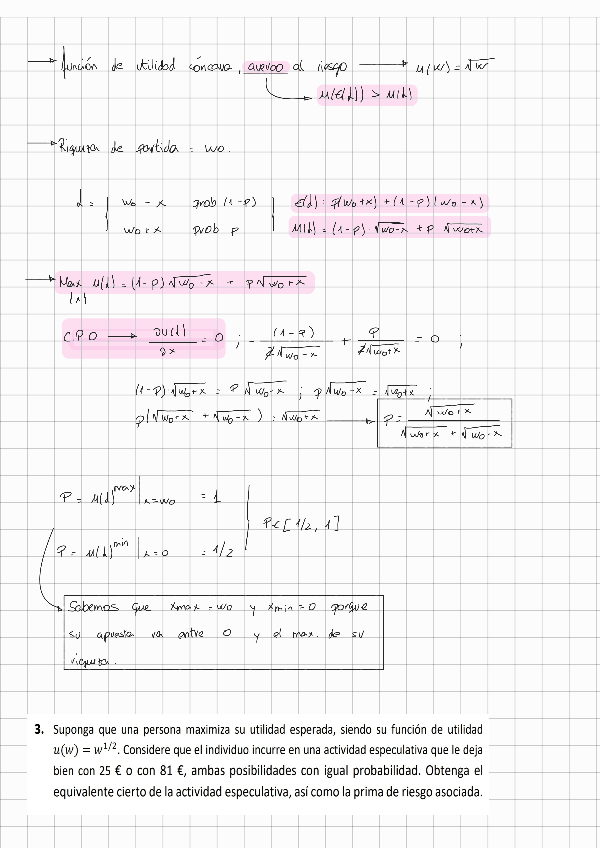 → función de utilidad cóncava, averso al riesgo → u(w) = √w
u(E(L)) > u(L)
→ Riqueza de partida = w₀.
L = { w₀ - x prob (1-p) | E(L) = p(w₀+x) + (1-p)(w₀-x)
w₀+x prob p | u(L) = (1-p) · √w₀-x + p √w₀+x
→ Max u(L) = (1-p) √w₀-x + p √w₀+x
{x}
C.P.O → ∂u(L)/∂x = 0 ; - (1-p)/2√w₀-x + p/2√w₀+x = 0 ;
(1-p) √w₀+x = p √w₀-x ; p √w₀-x = √w₀+x ;
p(√w₀+x + √w₀-x) = √w₀+x → p = √w₀+x / √w₀+x + √w₀-x
p = u(L)^max | x=w₀ = 1
p ∈ [1/2, 1]
p = u(L)^min | x=0 = 1/2
Sabemos que xmax = w₀ y xmin = 0 porque
su apuesta va entre 0 y el max. de su
riqueza.
3. Suponga que una persona maximiza su utilidad esperada, siendo su función de utilidad
u(w) = w^1/2. Considere que el individuo incurre en una actividad especulativa que le deja
bien con 25 € o con 81 €, ambas posibilidades con igual probabilidad. Obtenga el
equivalente cierto de la actividad especulativa, así como la prima de riesgo asociada.